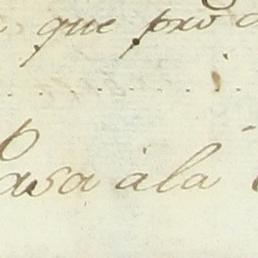 que pro
Pasa àla